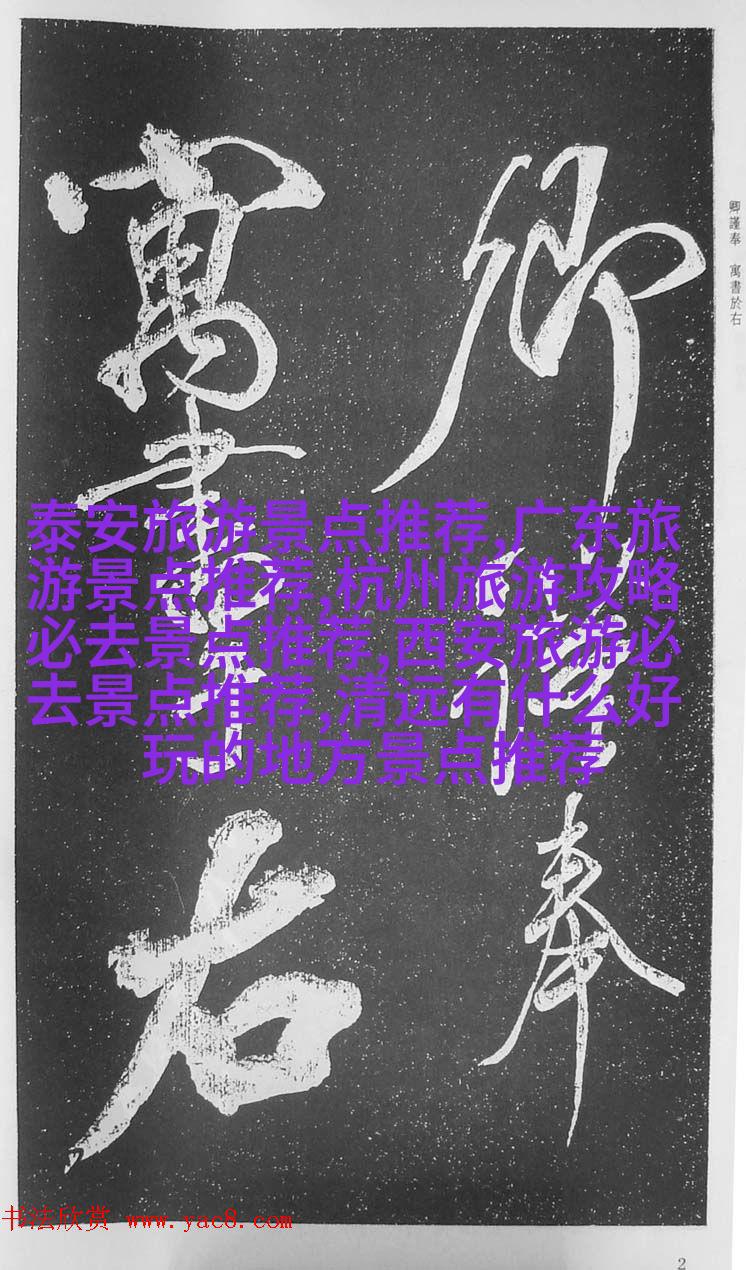 卿謹奉
寓書於右
卿謹奉 寓書於右
泰安旅游景点推荐,广东旅
游景点推荐,杭州旅游攻略
必去景点推荐,西安旅游必
去景点推荐,清远有什么好
玩的地方景点推荐
书法欣赏 www.yac8.com
2